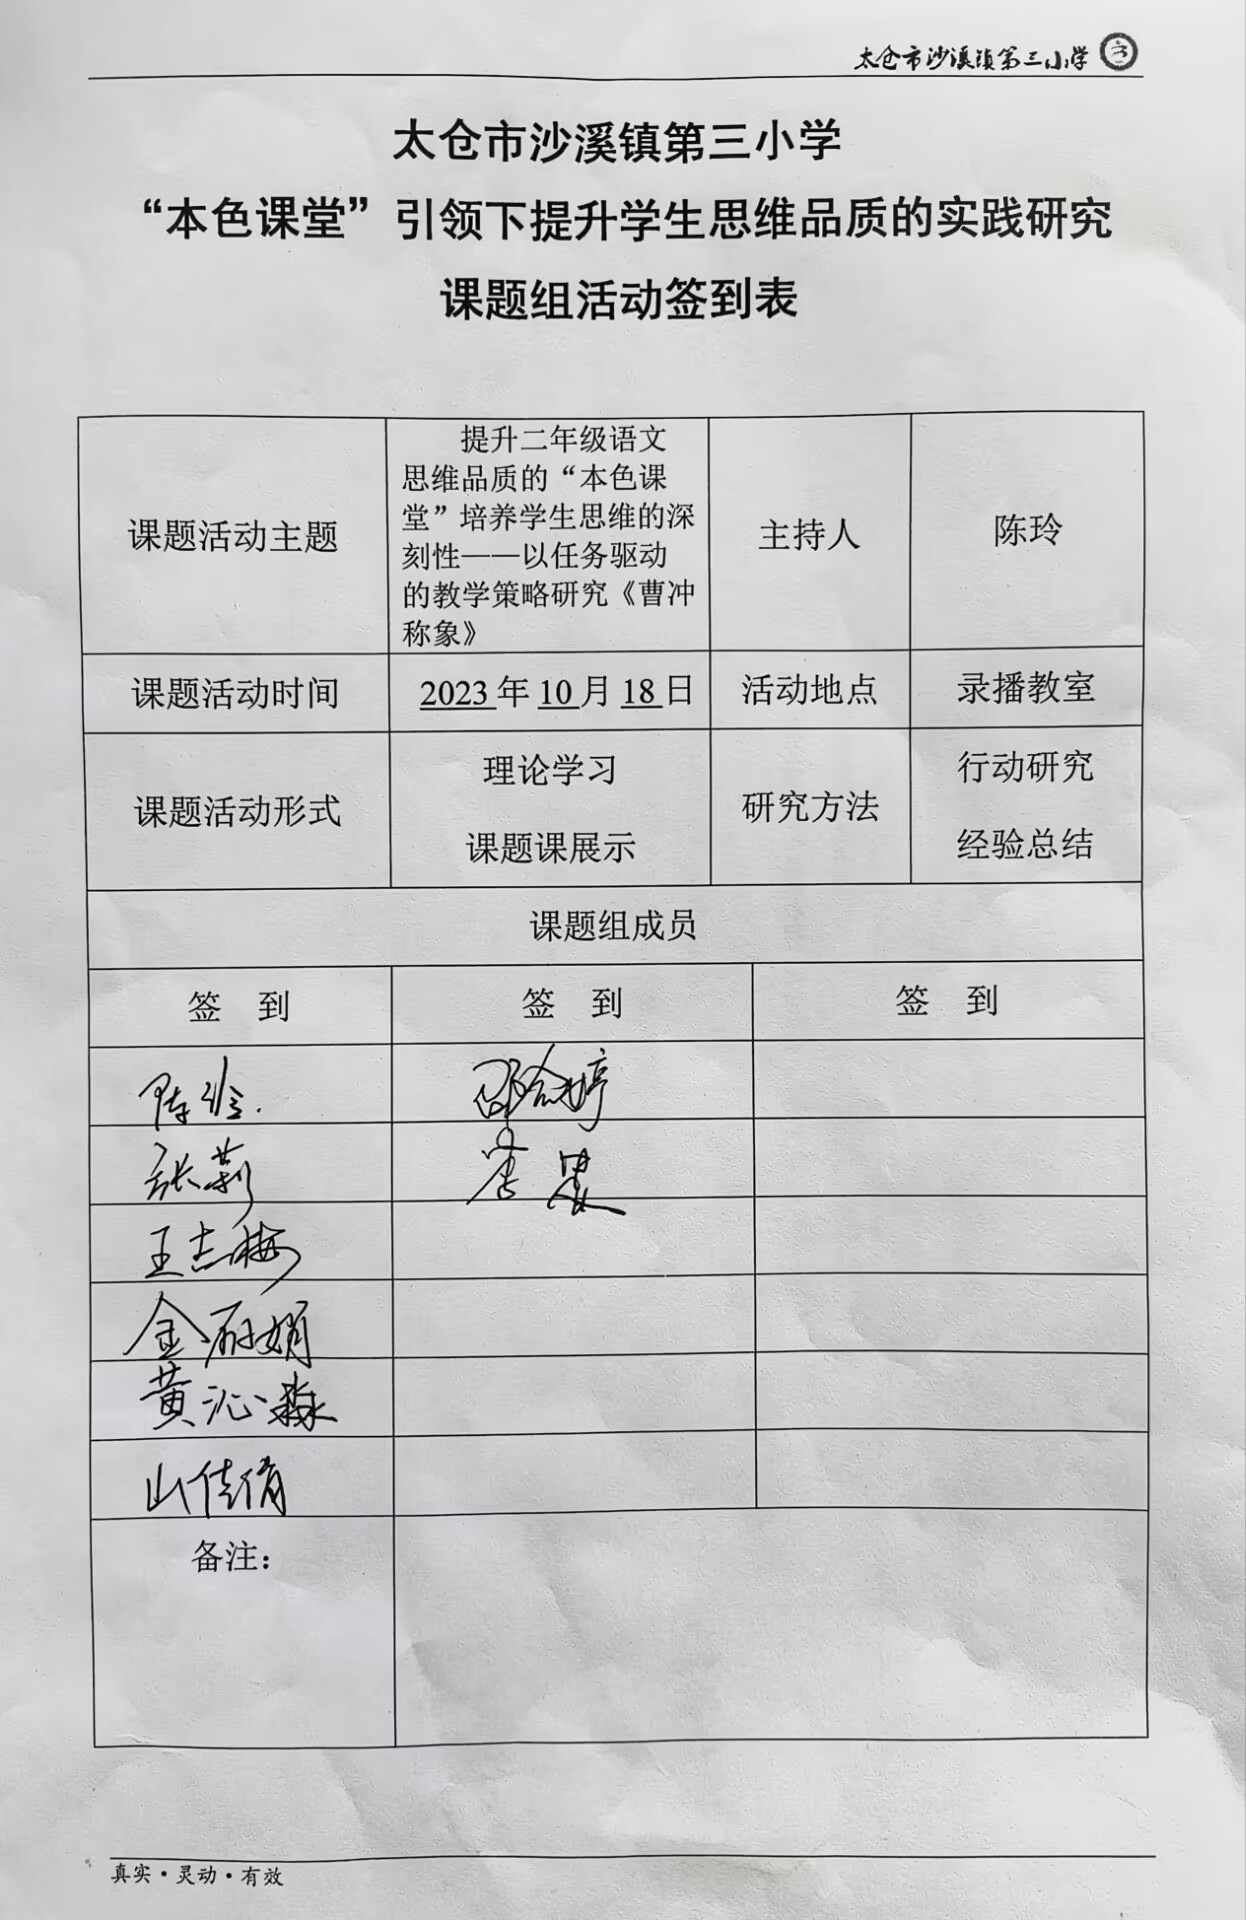 太仓市沙溪镇第三小学
太仓市沙溪镇第三小学
“本色课堂”引领下提升学生思维品质的实践研究
课题组活动签到表
课题活动主题
提升二年级语文
思维品质的“本色课
堂”培养学生思维的深
刻性——以任务驱动
的教学策略研究《曹冲
称象》
主持人
陈玲
课题活动时间
2023 年 10 月 18 日
活动地点
录播教室
课题活动形式
理论学习
课题课展示
研究方法
行动研究
经验总结
课题组成员
签 到
签 到
签 到
陈玲
张莉
王志梅
金丽娟
黄沁淼
山佳倩
备注：
真实·灵动·有效